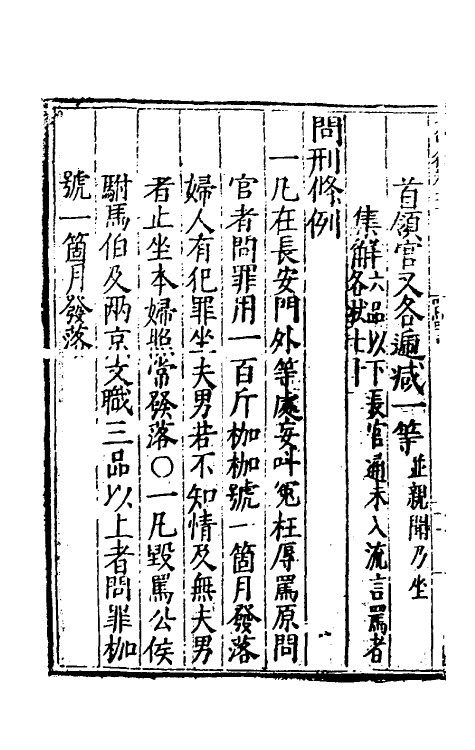 首領官又各遞減一等並親聞乃坐
集解六品以下長官通未入流言罵者
各杖七十
問刑條例
一凡在長安門外等處妄叫冤枉辱罵原問
官者問罪用一百斤枷枷號一箇月發落
婦人有犯罪坐夫男若不知情及無夫男
者止坐本婦照常發落〇一凡毀罵公侯
駙馬伯及兩京文職三品以上者問罪枷
號一箇月發落